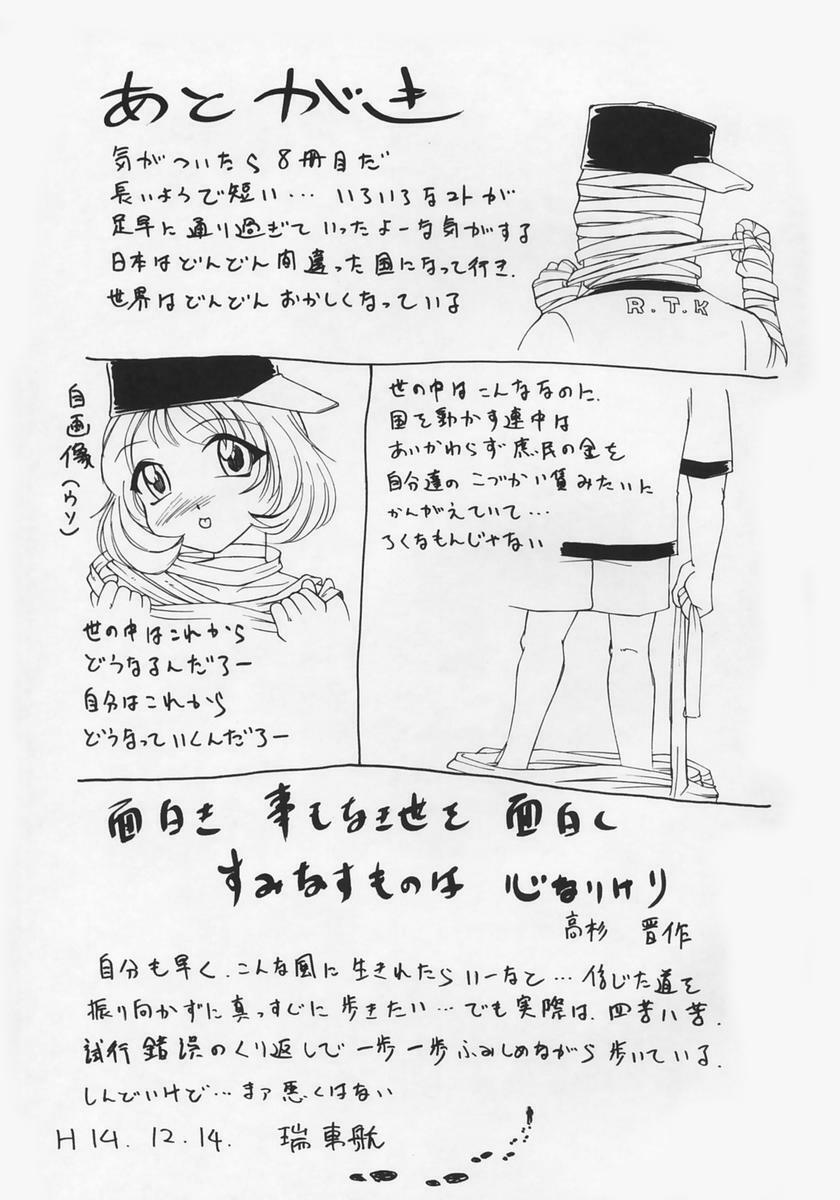 あとがき
気がついたら8冊目だ
長いようで短い… いろいろなコトが
足早に通り過ぎていったよーな気がする
日本はどんどん間違った国になって行き、
世界はどんどんおかしくなっている
R.T.K
自画像(ウソ)
世の中はこれから
どうなるんだろー
自分はこれから
どうなっていくんだろー
世の中はこんななのに、
国を動かす連中は
あいかわらず庶民の金を
自分達のこづかい質みたいに
かんがえていて…
ろくなもんじゃない
面白き 事もなき世を 面白く
すみなすものは 心なりけり
高杉 晋作
自分も早く、こんな風に生きれたらいーなと… 信じた道を
振り向かずに真っすぐに歩きたい… でも実際は、四苦八苦、
試行錯誤のくり返しで一歩一歩ふみしめながら歩いている、
しんどいけど… まァ悪くはない
H14.12.14. 瑞車航